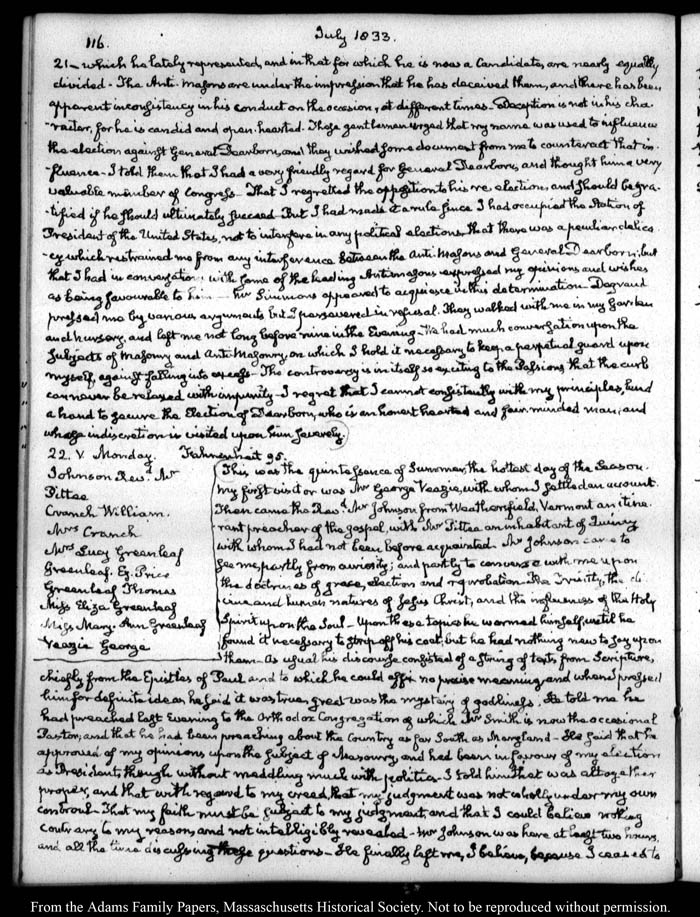 116.
July 1833.
21 – which he lately represented, and in that for which he is now a Candidate, are nearly equally
divided – The Anti-Masons are under the impression that he has deceived them, and there has been
apparent inconsistency in his conduct on the occasion, at different times – Deception is not in his cha-
racter, for he is candid and open hearted. These gentlemen urged that my name was used to influence
the election against General Dearborn, and they wished some document from me to counteract that in-
-fluence – I told them that I had a very friendly regard for General Dearborn, and thought him a very
valuable member of Congress – That I regretted the opposition to his re-election, and should be gra-
-tified if he should ultimately succeed – But I had made it a rule since I had occupied the Station of
President of the United States, not to interfere in any political elections, that there was a peculiar delica-
-cy which restrained me from any interference between the Anti-Masons and General Dearborn; but
that I had in conversation with some of the leading Antimasons expressed my opinions and wishes
as being favourable to him – Mr Simmons appeared to acquiesce in this determination – Degrand
pressed me by various arguments but I persevered in refusal. They walked with me in my Garden
and nursery, and left me not long before nine in the Evening – We had much conversation upon the
Subjects of Masonry and Anti-Masonry, on which I hold it necessary to keep a perpetual guard upon
myself, against falling into excess – The controversy is in itself so exciting to the Passions that the curb
can never be relaxed with impunity – I regret that I cannot consistently with my principles, lend
a hand to secure the Election of Dearborn, who is an honest hearted and fair minded man; and
whose indiscretion is visited upon him severely.
22. V. Monday. Fahrenheit 95.
Johnson Revd. Mr
Pittee
Cranch William.
Mrs Cranch
Mrs Lucy Greenleaf
Greenleaf. Ez. Price
Greenleaf Thomas
Miss Eliza Greenleaf
Miss Mary Ann Greenleaf
Veazie George
This was the quintessence of Summer, the hottest day of the Season.
My first visitor was Mr George Veazie, with whom I settled an account.
Then came the Revd. Mr Johnson from Weathersfield, Vermont an itine-
rant preacher of the gospel, with Mr Pittee an inhabitant of Quincy
with whom I had not been before acquainted. Mr Johnson came to
see me, partly from curiosity, and partly to converse with me upon
the doctrines of grace, election and reprobation – The Trinity, the di-
vine and human natures of Jesus Christ, and the influences of the Holy
Spirit upon the Soul – Upon these topics he warmed himself until he
found it necessary to strip off his coat, but he had nothing new to say upon
them – As usual his discourse consisted of a string of texts from Scripture,
chiefly from the Epistles of Paul and to which he could affix no precise meaning and when pressed
him for definite ideas he said it was true, great was the mystery of godliness. He told me he
had preached last Evening to the Orthodox Congregation of which Mr Smith is now the occasional
Pastor, and that he had been preaching about the Country as far South as Maryland – He said that he
approved of my opinions upon the subject of Masonry, and had been in favour of my election
as President, though without meddling much with politics – I told him that was altogether
proper, and that with regard to my creed, that my judgment was not wholly under my own
controul – That my faith must be subject to my judgment, and that I could believe nothing
contrary to my reason, and not intelligibly revealed – Mr Johnson was here at least two hours,
and all the time discussing these questions – He finally left me, I believe, because I ceased to
From the Adams Family Papers, Massachusetts Historical Society. Not to be reproduced without permission.